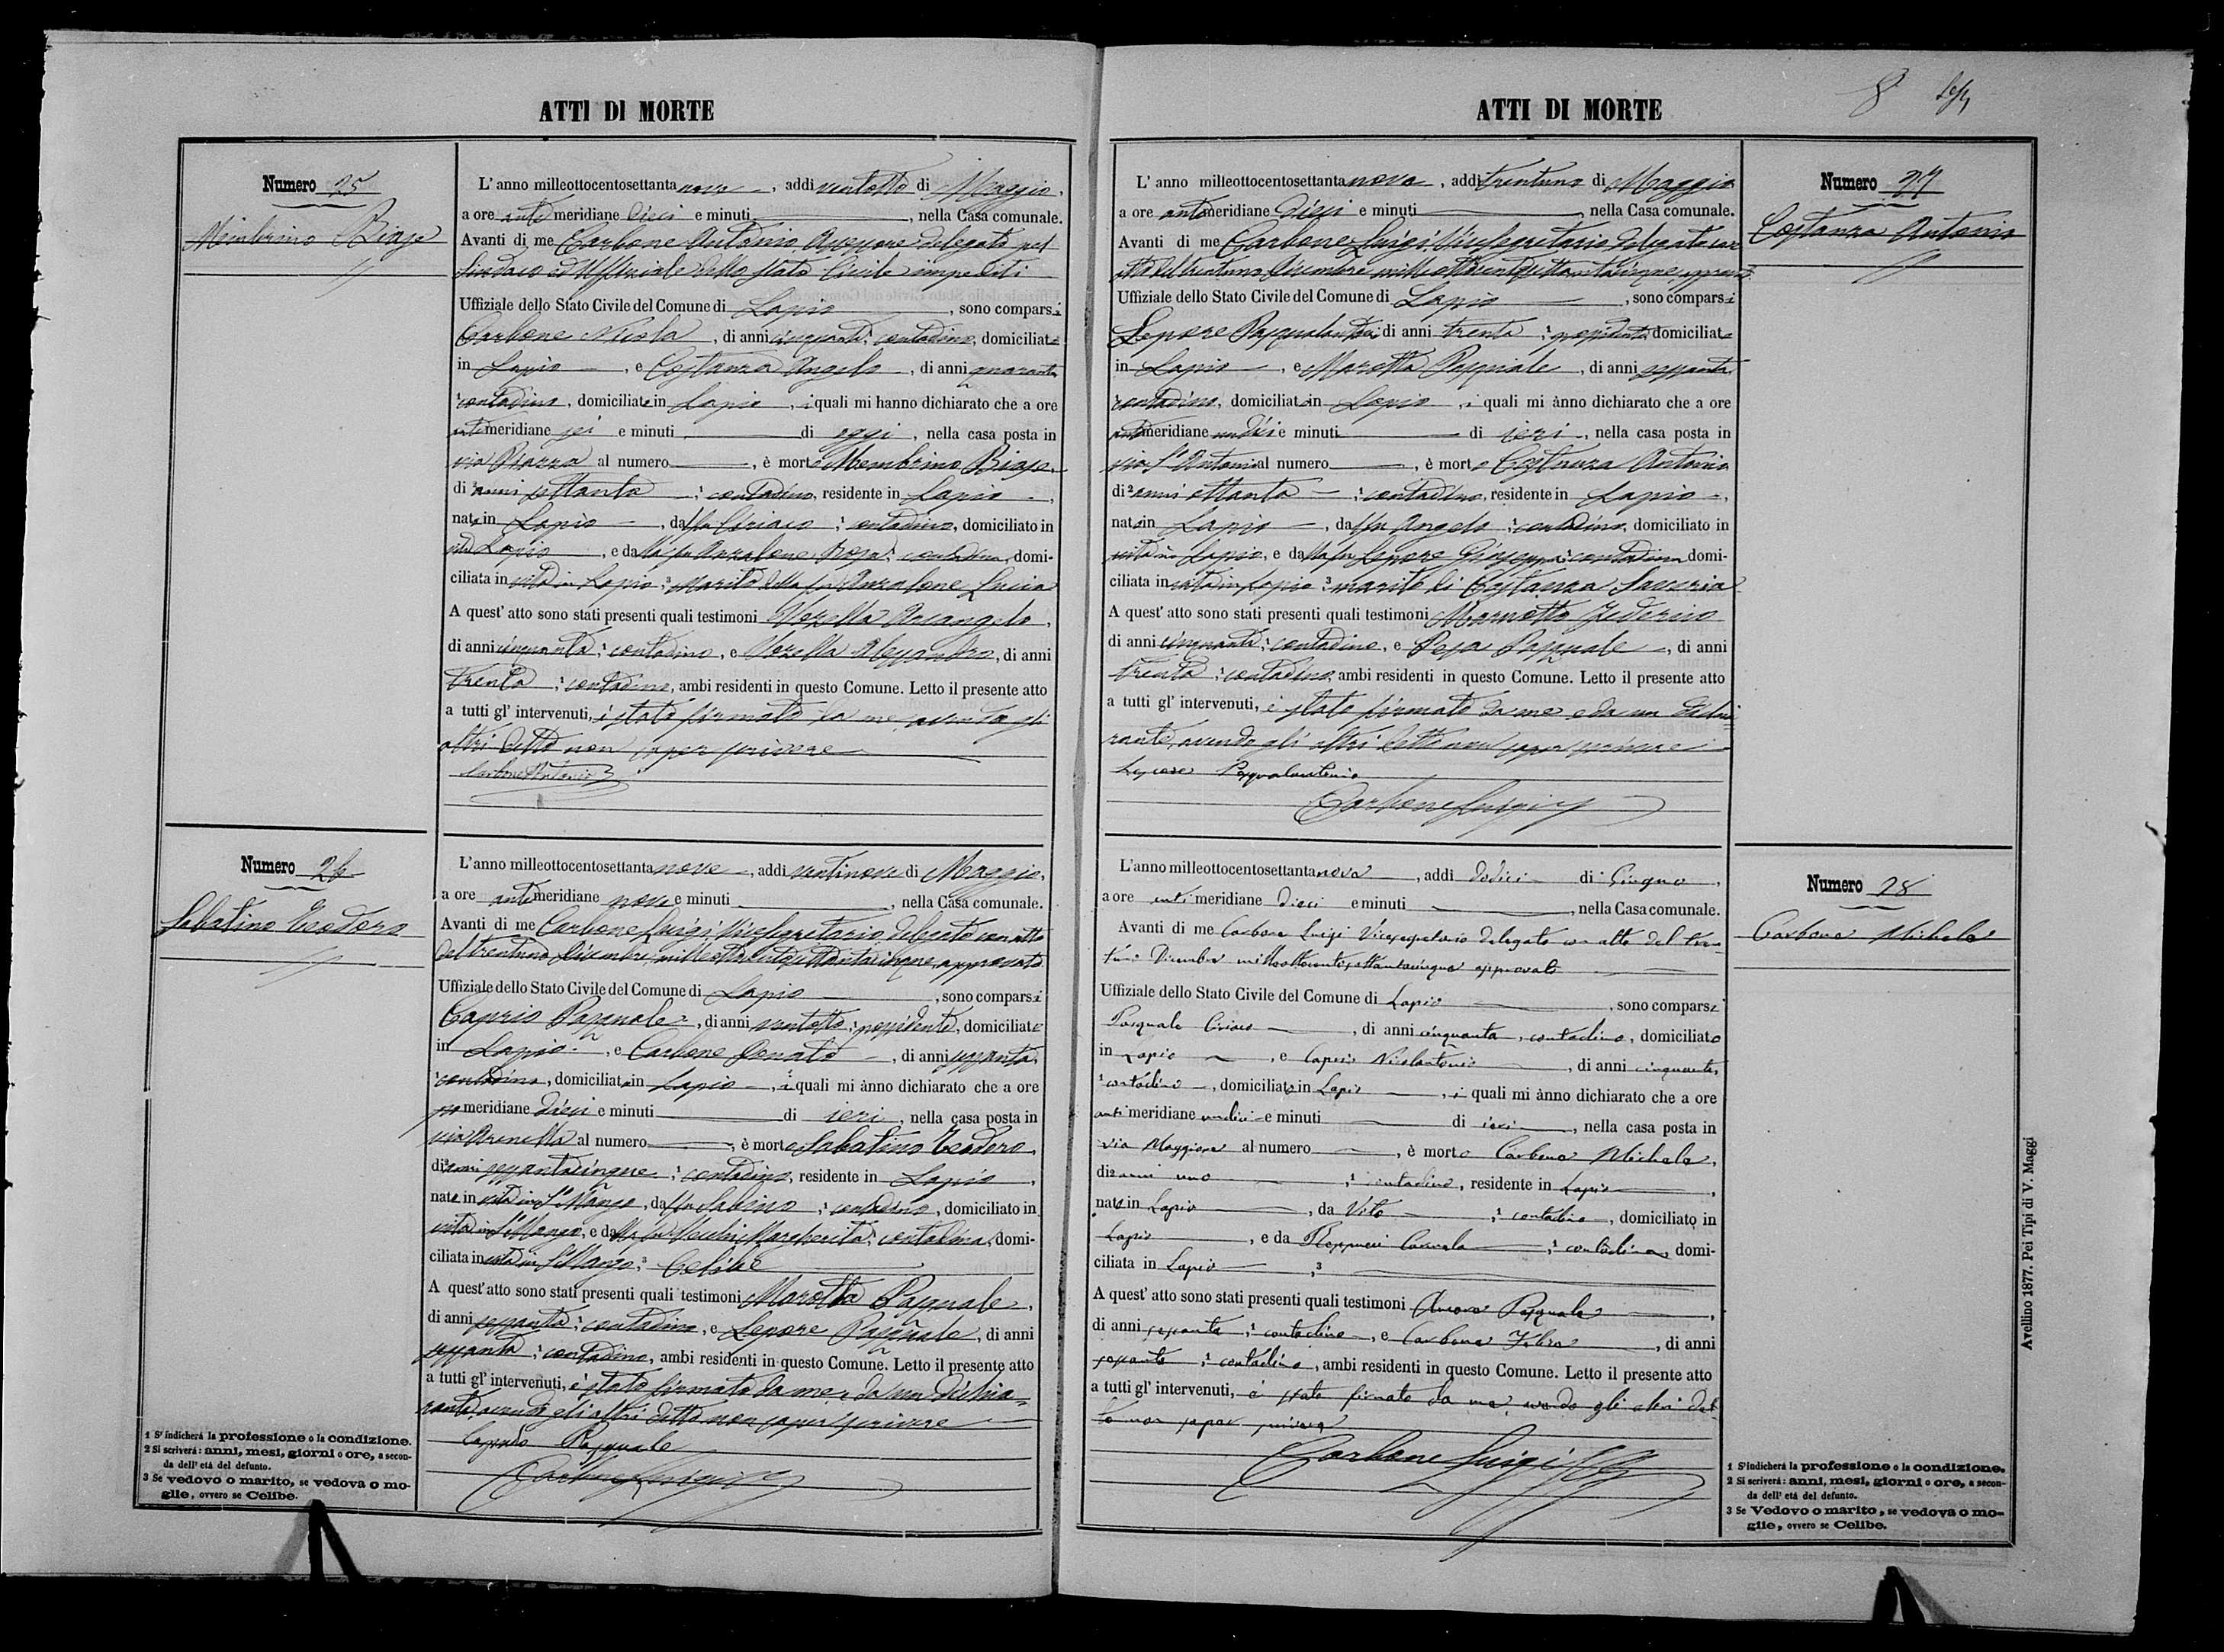 ATTI DI MORTE
Numero 25
Membrino Biase
L'anno milleottocentosettanta nove, addi ventotto di Maggio,
a ore ante meridiane dieci e minuti, nella Casa comunale.
Avanti di me Carbone Antonio Assessore delegato pel
Sindaco ed Uffiziale dello Stato Civile impediti
Uffiziale dello Stato Civile del Comune di Lapio, sono comparsi
Carbone Nicola, di anni cinquanta, contadino, domiciliato
in Lapio, e Costanza Angelo, di anni quaranta
contadino, domiciliato in Lapio, i quali mi hanno dichiarato che a ore
ante meridiane sei e minuti di oggi, nella casa posta in
via Piazza al numero, è morto Membrino Biase,
di anni settanta, contadino, residente in Lapio,
nato in Lapio, dal fu Ciriaco, contadino, domiciliato in
Lapio, e dalla fu Anzalone Rosa, contadina, domi-
ciliata in vita in Lapio, marito della fu Anzalone Lucia
A quest' atto sono stati presenti quali testimoni Vozella Arcangelo,
di anni cinquanta, contadino, e Vozella Alessandro, di anni
trenta, contadino, ambi residenti in questo Comune. Letto il presente atto
a tutti gl' intervenuti, è stato firmato da me avendo gli
altri detto non saper scrivere
Carbone Antonio
Numero 26
Sabatino Teodoro
L'anno milleottocentosettanta nove, addi ventinove di Maggio,
a ore anti meridiane nove e minuti, nella Casa comunale.
Avanti di me Carbone Luigi Vicesegretario delegato con atto
del trentuno Dicembre milleottocentosettantacinque approvato
Uffiziale dello Stato Civile del Comune di Lapio, sono comparsi
Caprio Pasquale, di anni ventotto, possidente, domiciliato
in Lapio, e Carbone Donato, di anni sessanta,
contadino, domiciliato in Lapio, i quali mi ànno dichiarato che a ore
po meridiane dieci e minuti di ieri, nella casa posta in
via Arenella al numero, è morto Sabatino Teodoro,
di anni sessantacinque, contadino, residente in Lapio,
nato in vita in S. Mango, dal fu Sabino, contadino, domiciliato in
vita in S. Mango, e dalla fu Margherita, contadina, domi-
ciliata in vita in S. Mango, 3 Celibe
A quest' atto sono stati presenti quali testimoni Marotta Pasquale,
di anni sessanta, contadino, e Lepore Pasquale, di anni
sessanta, contadino, ambi residenti in questo Comune. Letto il presente atto
a tutti gl' intervenuti, è stato firmato da me e da un dichia-
rante, avendo gli altri detto non saper scrivere
Pasquale
Carbone Luigi
1 S' indicherà la professione o la condizione.
2 Si scriverà: anni, mesi, giorni o ore, a secon-
da dell' età del defunto.
3 Se vedovo o marito, se vedova o mo-
glie, ovvero se Celibe.
ATTI DI MORTE
8
Numero 27
Costanza Antonio
L' anno milleottocentosettanta nove, addi trentuno di Maggio
a ore anti meridiane dieci e minuti, nella Casa comunale.
Avanti di me Carbone Luigi Vicesegretario delegato con
atto del trentuno Dicembre milleottocentosettantacinque approvato
Uffiziale dello Stato Civile del Comune di Lapio, sono comparsi
Lepore Pasqualantonio di anni trenta, possidente domiciliato
in Lapio, e Marotta Pasquale, di anni sessanta
contadino, domiciliato in Lapio, i quali mi ànno dichiarato che a ore
anti meridiane undici e minuti di ieri, nella casa posta in
via S. Antonio al numero, è morto Costanza Antonio
di anni ottanta, contadino, residente in Lapio,
nato in Lapio, dal fu Angelo, contadino, domiciliato in
vita in Lapio, e dalla fu Lepore Giuseppa, contadina domi-
ciliata in vita in Lapio, 3 marito di Costanza Saveria
A quest' atto sono stati presenti quali testimoni Marnotto Federico
di anni cinquanta, contadino, e Pepa Pasquale, di anni
trenta, contadino, ambi residenti in questo Comune. Letto il presente atto
a tutti gl' intervenuti, è stato firmato da me e da un dichia-
rante, avendo gli altri detto non saper scrivere
Lepore Pasqualantonio
Carbone Luigi
Numero 28
Carbone Michele
L'anno milleottocentosettanta nove, addi dodici di Giugno,
a ore anti meridiane dieci e minuti, nella Casa comunale.
Avanti di me Carbone Luigi Vicesegretario delegato con atto del tren-
tuno Dicembre milleottocentosettantacinque approvato
Uffiziale dello Stato Civile del Comune di Lapio, sono comparsi
Pasquale Ciriaco, di anni cinquanta, contadino, domiciliato
in Lapio, e Caprio Nicolantonio, di anni cinquanta,
contadino, domiciliato in Lapio, i quali mi ànno dichiarato che a ore
anti meridiane undici e minuti di ieri, nella casa posta in
via Maggiore al numero, è morto Carbone Michele,
di anni uno, contadino, residente in Lapio,
nato in Lapio, da Vito, contadino, domiciliato in
Lapio, e da Carmela, contadina, domi-
ciliata in Lapio, 3
A quest' atto sono stati presenti quali testimoni Pasquale,
di anni sessanta, contadino, e Carbone, di anni
sessanta, contadino, ambi residenti in questo Comune. Letto il presente atto
a tutti gl' intervenuti, è stato firmato da me, avendo gli altri det-
to non saper scrivere
Carbone Luigi
1 S' indicherà la professione o la condizione.
2 Si scriverà: anni, mesi, giorni o ore, a secon-
da dell' età del defunto.
3 Se Vedovo o marito, se vedova o mo-
glie, ovvero se Celibe.
Avellino 1877. Pei Tipi di V. Maggi